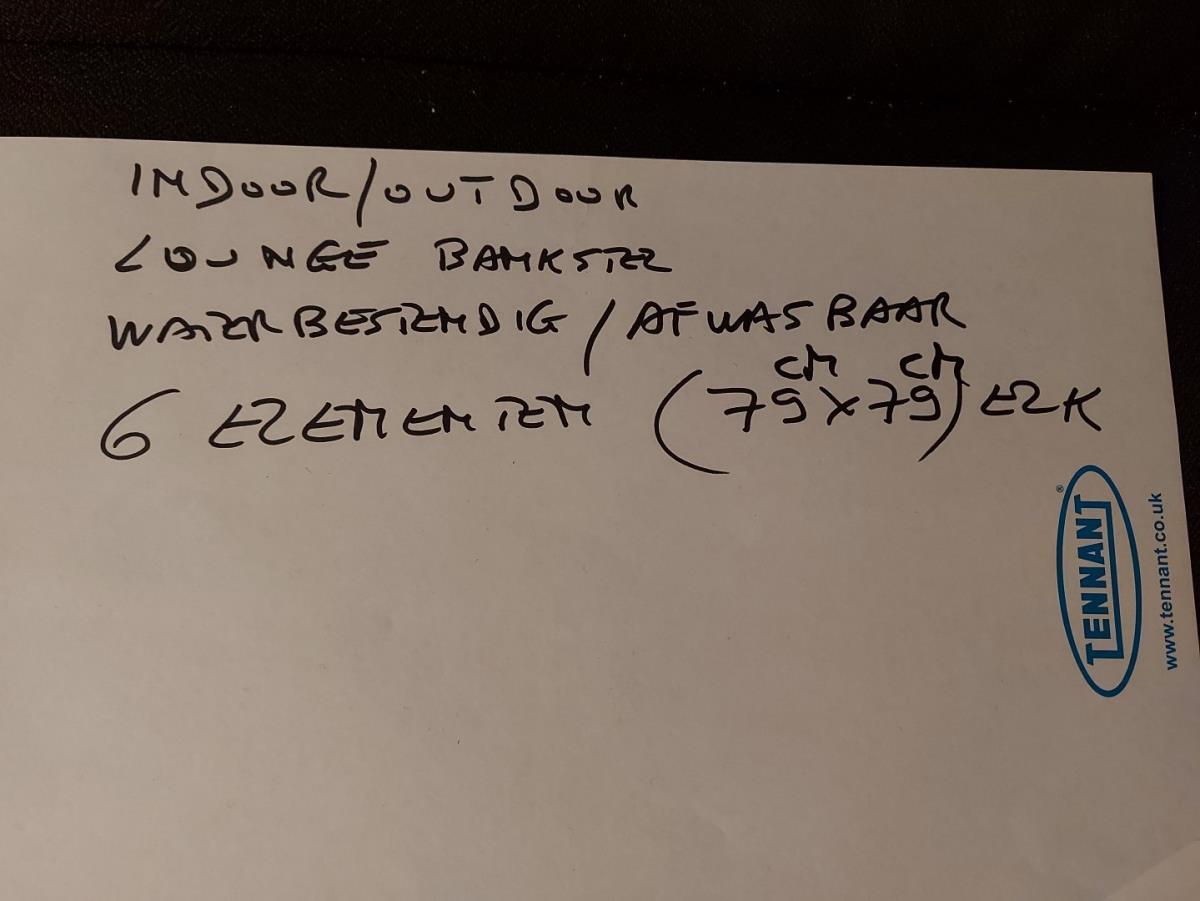 INDOOR/OUTDOOR
LOUNGE BANKSTEL
WATERBESTENDIG / AFWASBAAR
6 ELEMENTEN (79cm x 79cm) ELK
TENNANT®
www.tennant.co.uk